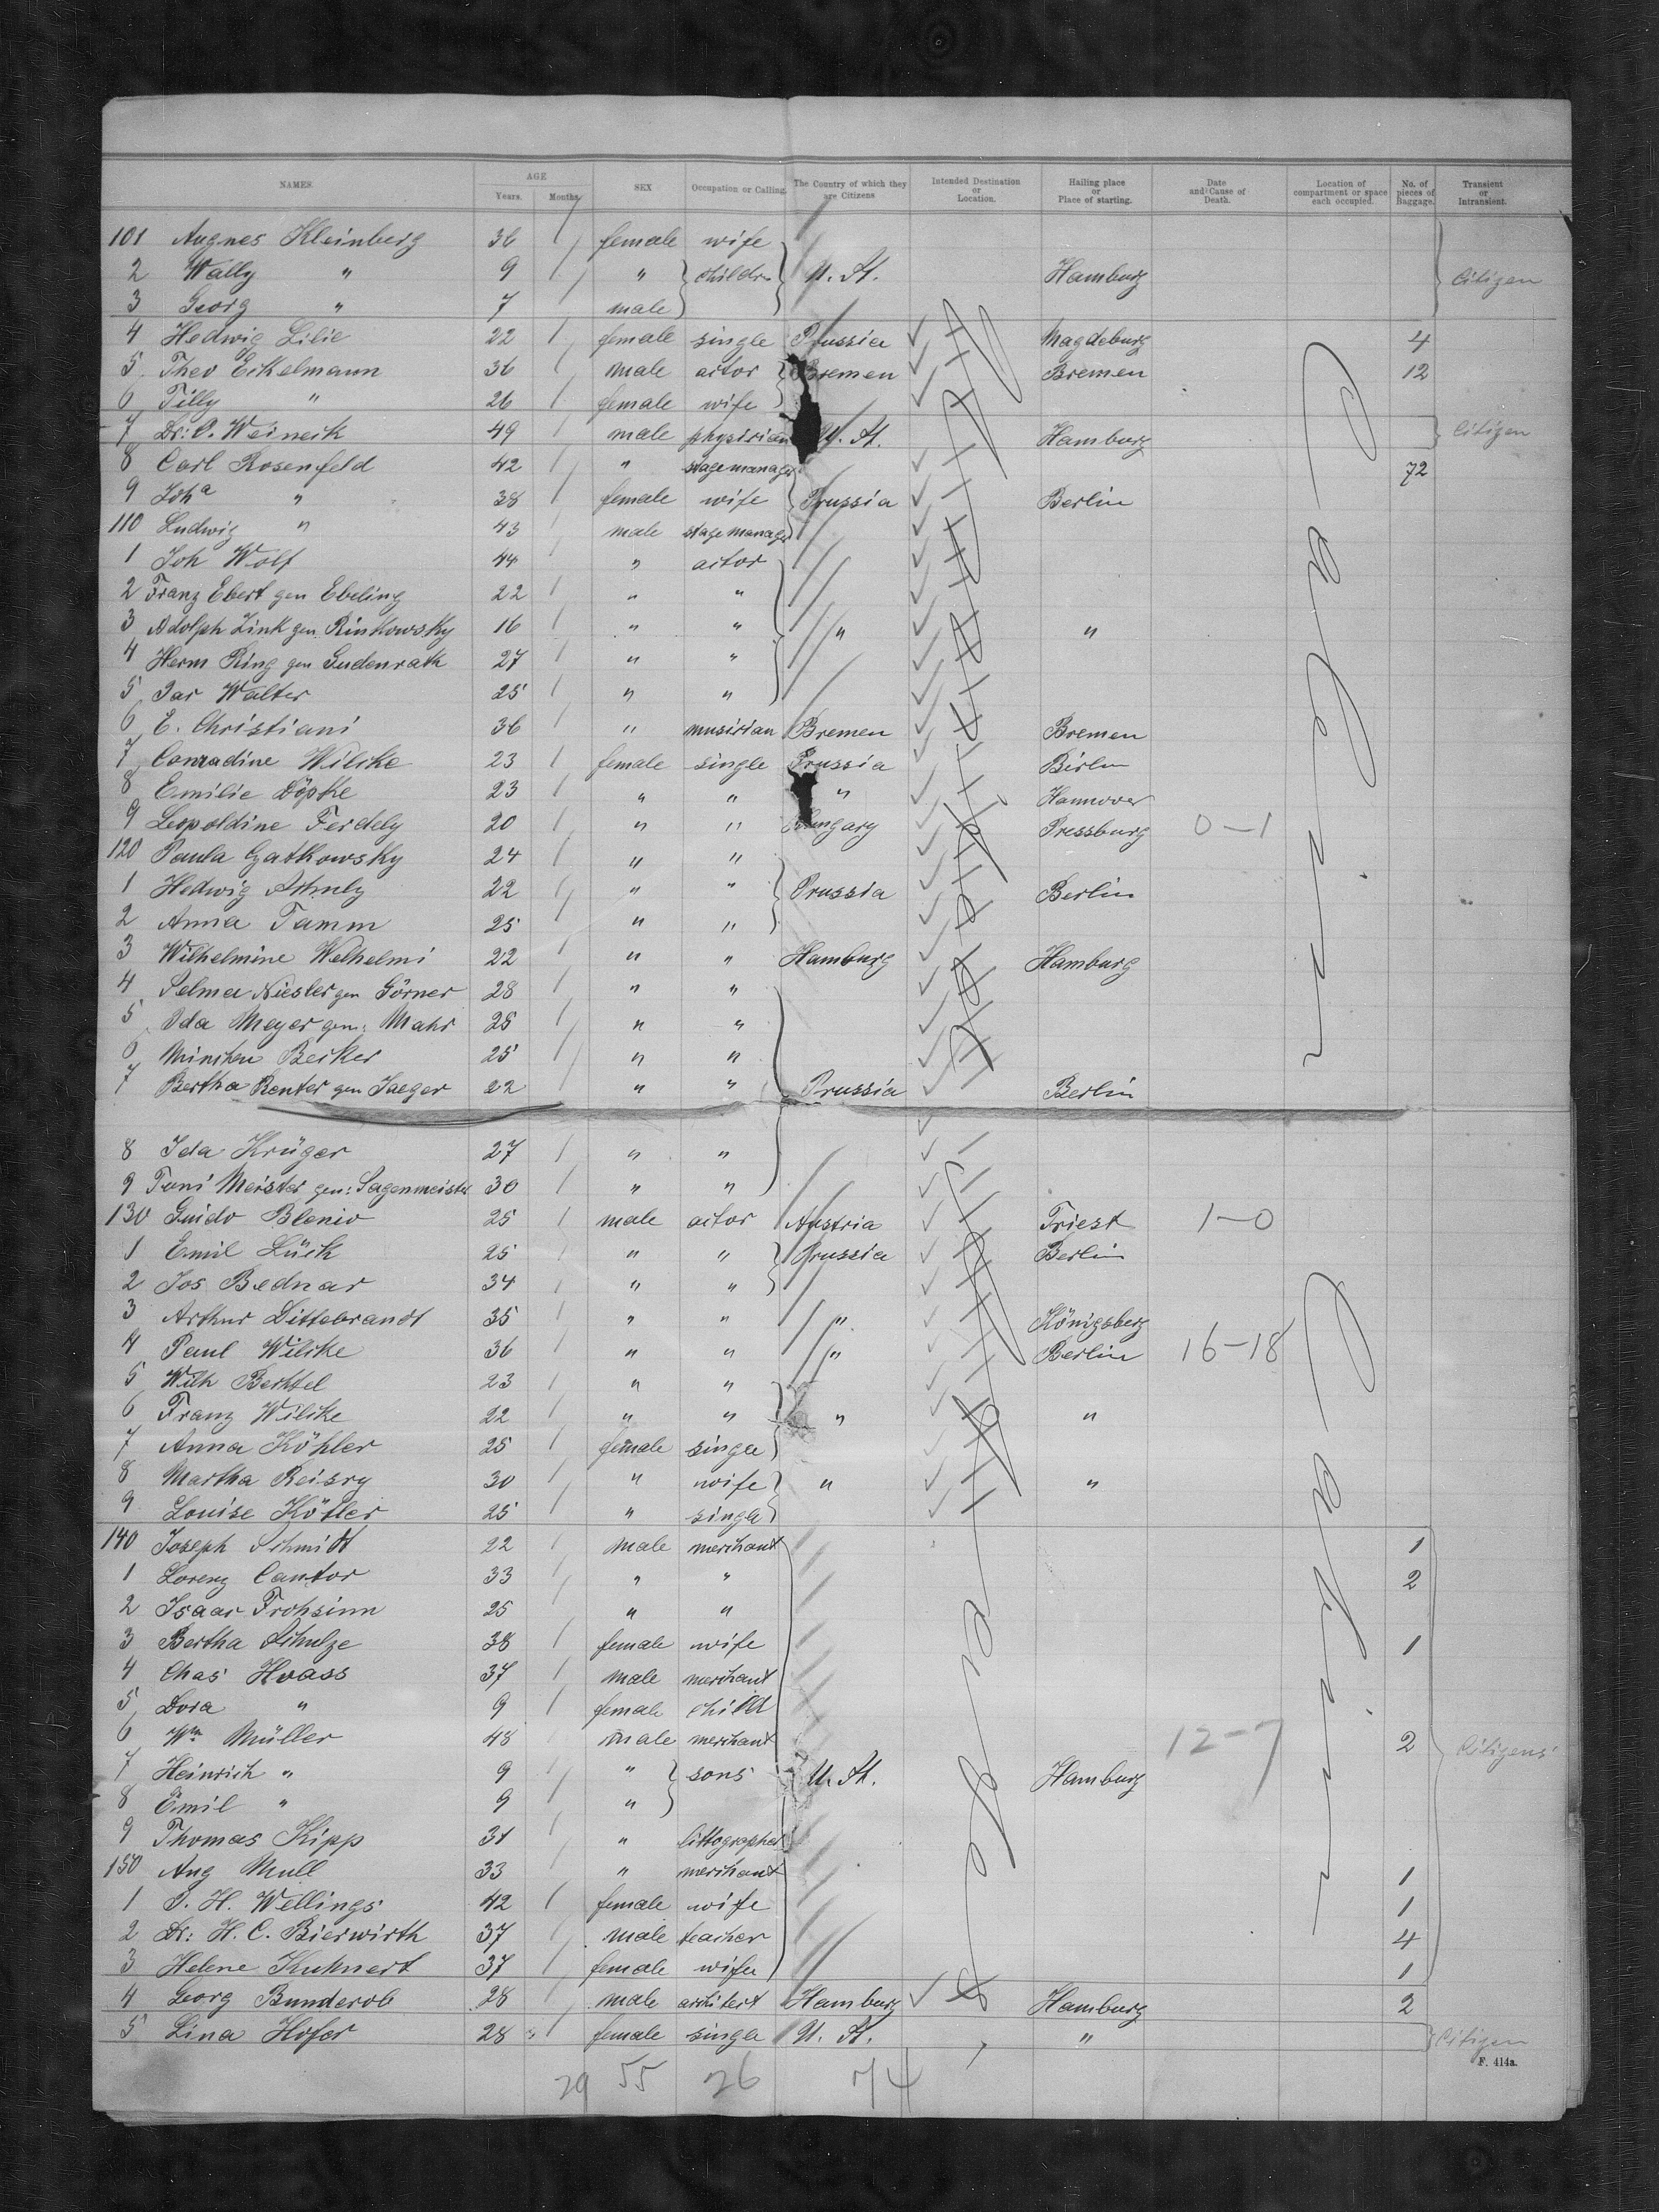 NAMES. AGE SEX Occupation or Calling. The Country of which they are Citizens Intended Destination or Location. Hailing place or Place of starting. Date and Cause of Death. Location of compartment or space each occupied. No. of pieces of Baggage. Transient or Intransient.
Years. Months.
101 Augnes Kleinberg 36 female wife
2 Wally " 9 " childr U. St. Hamburg Citizen
3 Georg " 7 male
4 Hedwig Lilie 22 female single Prussia Magdeburg 4
5 Theo Eikelmann 36 male actor Bremen Bremen 12
6 Tilly " 26 female wife
7 Dr: O. Weineck 49 male physician U. St. Hamburg Citizen
8 Carl Rosenfeld 42 " stage manager 72
9 Joha " 38 female wife Prussia Berlin
110 Ludwig " 43 male stage manager
1 Joh Wolf 44 " actor
2 Franz Ebert gen Ebeling 22 " "
3 Adolph Zink gen. Rinkowsky 16 " " " "
4 Herm Ring gen Gudenrath 27 " "
5 Walter 25 " "
6 E. Christiani 36 " musician Bremen Bremen
7 Conradine Wilike 23 female single Prussia Berlin
8 Emilie Döpke 23 " " " Hannover
9 Leopoldine Ferdely 20 " " Hungary Pressburg 0-1
120 Paula Gatkowsky 24 " "
1 Hedwig 22 " " Prussia Berlin
2 Anna Tamm 25 " "
3 Wilhelmine Welhelmi 22 " " Hamburg Hamburg
4 Selma Niesler gen Görner 28 " "
5 Ida Meyer gen: Mahr 25 " "
6 Minchen Becker 25 " "
7 Bertha Renter gen Jaeger 22 " " Prussia Berlin
8 Ida Krüger 27 " "
9 Toni Meister gen: Sagenmeister 30 " "
130 Guido Blenio 25 male actor Austria Triest 1-0
1 Emil Lück 25 " " Prussia Berlin
2 Jos Bednar 34 " "
3 Arthur Dittebrandt 35 " " " Königsberg
4 Paul Wilike 36 " " " Berlin 16-18
5 Wilh Bechtel 23 " "
6 Franz Wilike 22 " " " "
7 Anna Köhler 25 female single
8 Martha Reisry 30 " wife " "
9 Louise Kötler 25 " single
140 Joseph Schmidt 22 male merchant 1
1 Lorenz Cantor 33 " " 2
2 Isaac Frohsinn 25 " "
3 Bertha Schulze 38 female wife 1
4 Chas Hoass 37 male merchant
5 Dora " 9 female child
6 Wm Müller 48 male merchant 12-7 2 Citizens
7 Heinrich " 9 " sons U. St. Hamburg
8 Emil " 9 "
9 Thomas Kipp 31 " littographer
150 Aug Mull 33 " merchant 1
1 H. Wellings 42 female wife 1
2 Dr: H. C. Bierwirth 37 male teacher 4
3 Helene Kuhnert 37 female wife 1
4 Georg Bunderob 28 male architect Hamburg Hamburg 2
5 Lina Hofer 28 female single U. St. " Citizen
F. 414a.
29 55 26 74